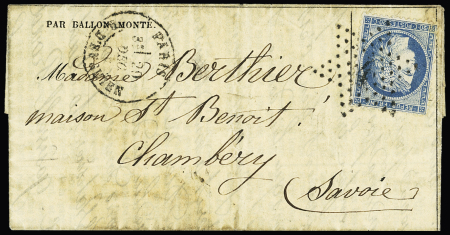 PAR BALLON MONTÉ.
PARIS
Madame Berthier
maison St Benoit
Chambéry
Savoie